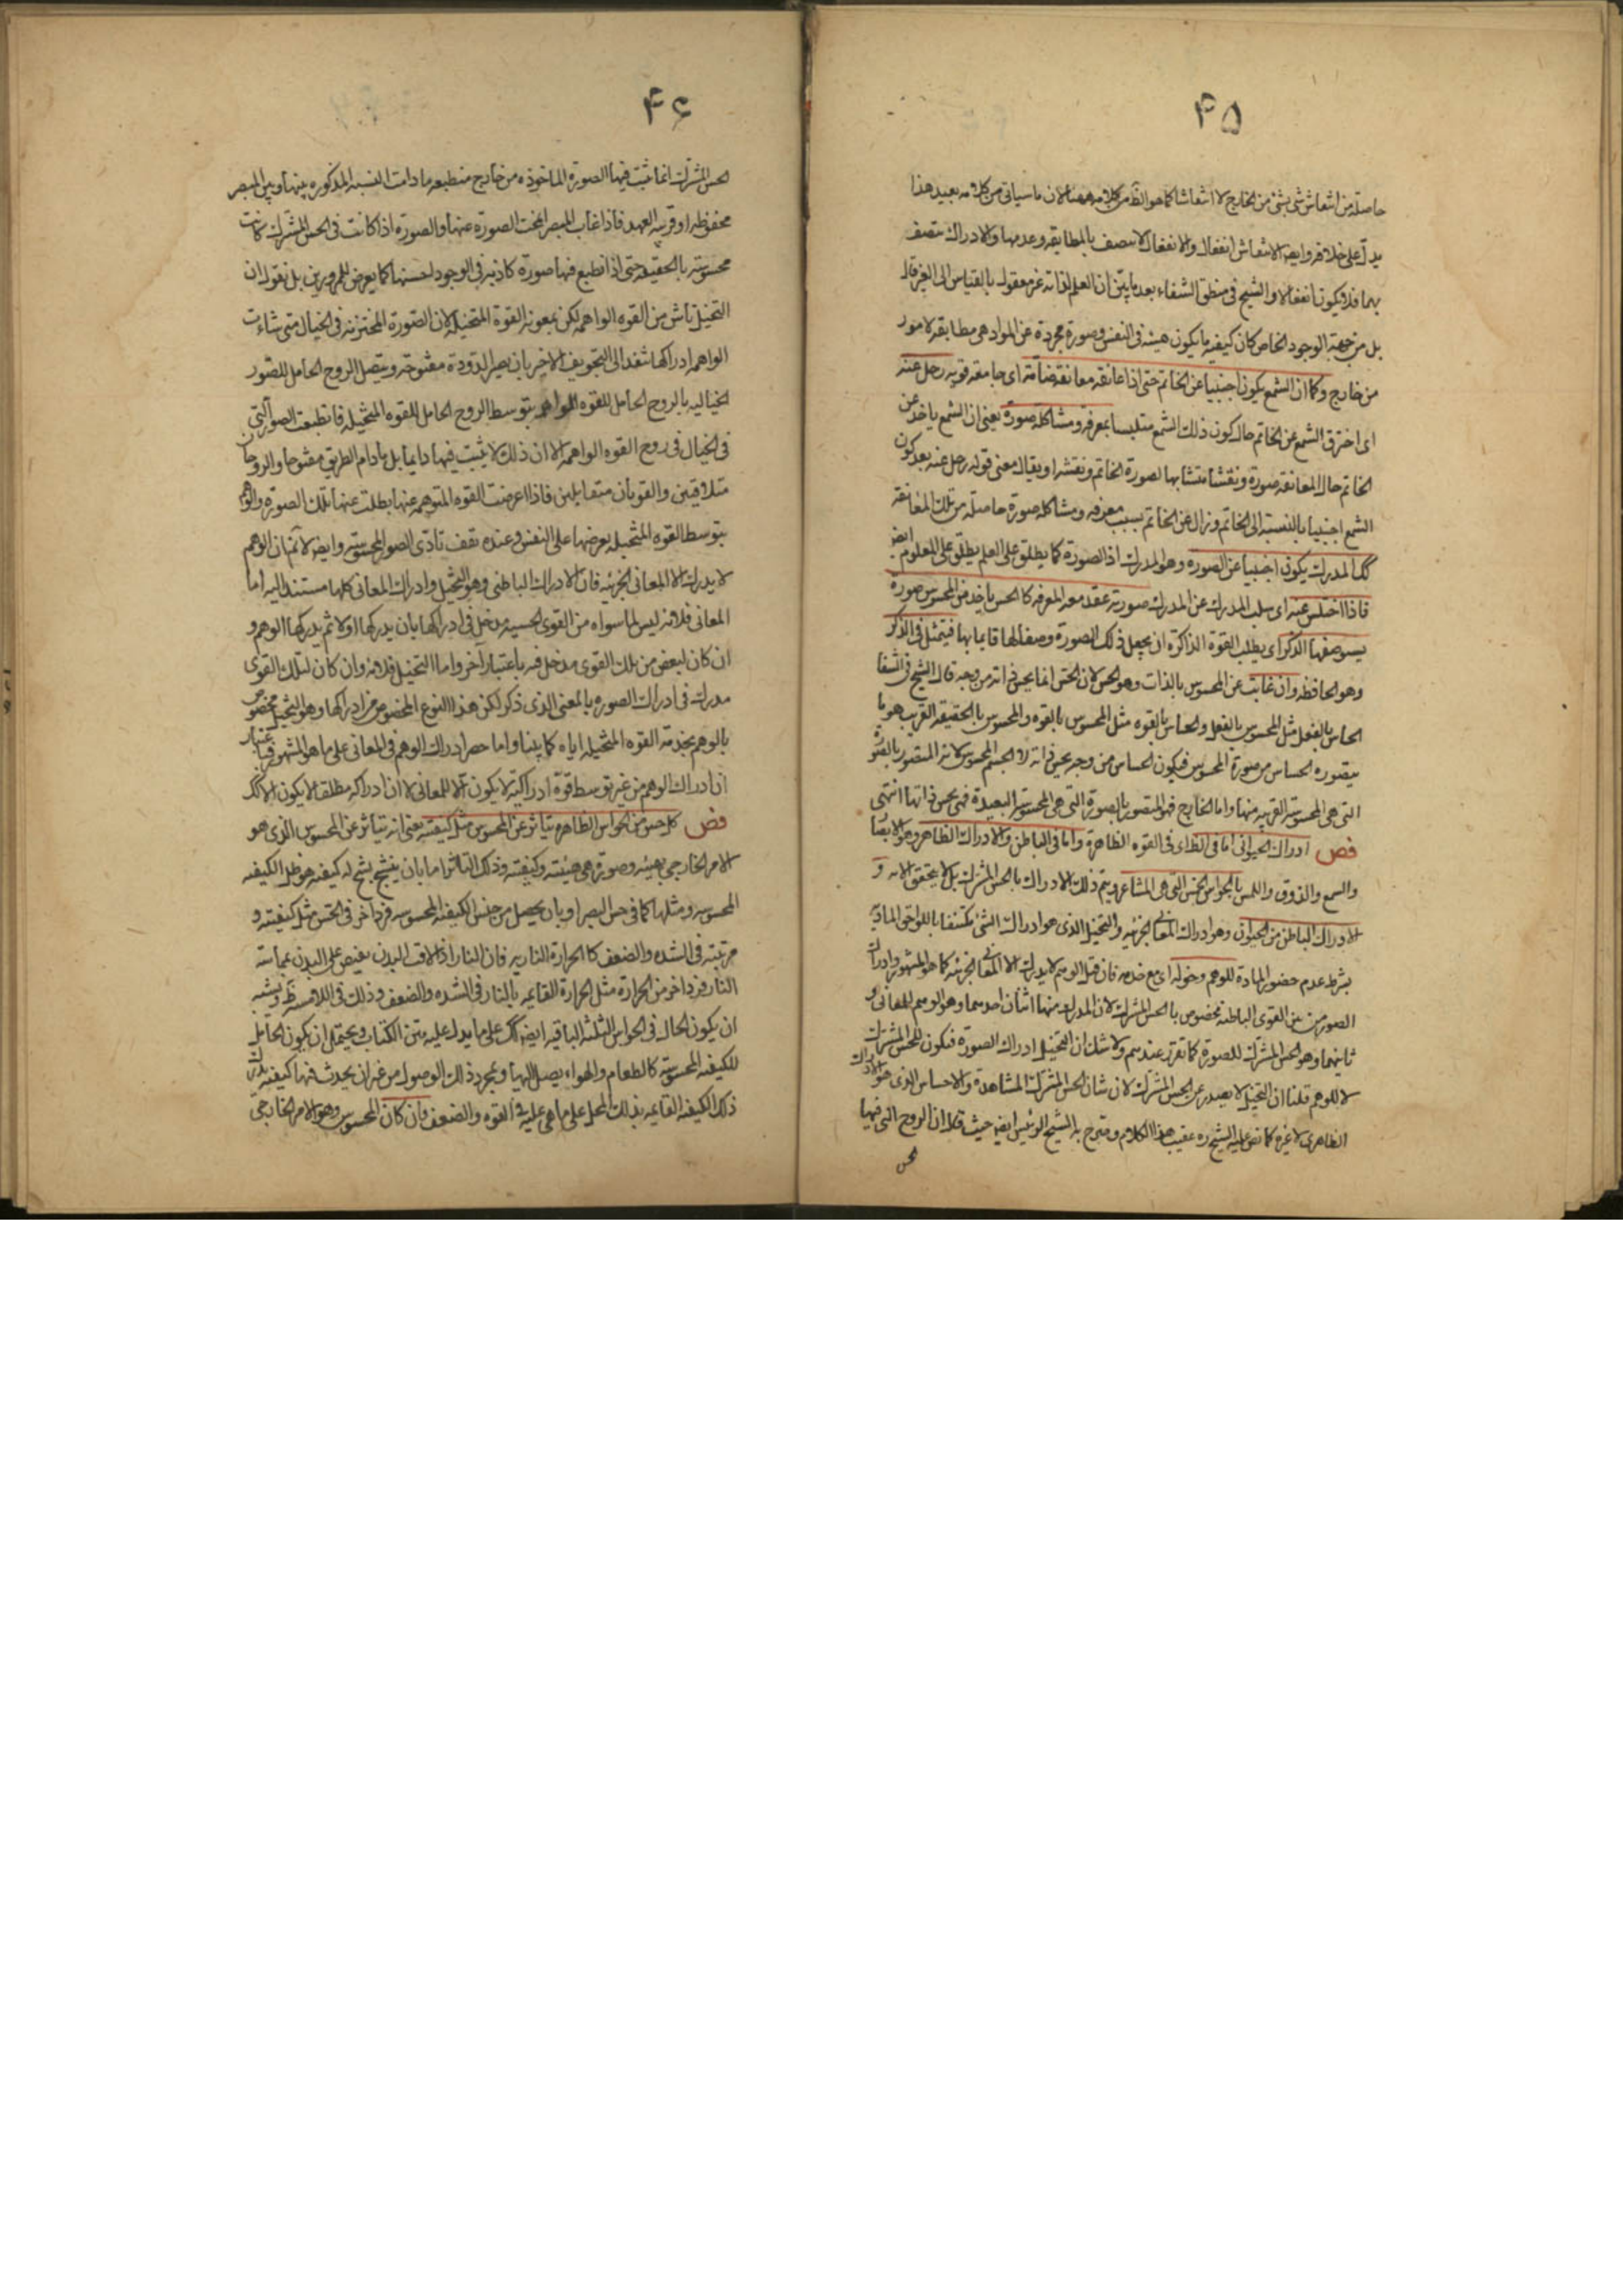 ۴۵
حاصلة من انتقاش شئ بشئ من الخارج لا انتقاشا كما هو الظ من كلامه ههنا لان ما سياتى من كلامه بعيد هذا
يدل على خلافه وايضا الانتقاش انفعال والانفعال لا يتصف بالمطابقه وعدمها والادراك يتصف
بهما فلا يكون انفعالا والشيخ فى منطق الشفاء بعد ما بين ان العلم لذاته غير معقول بالقياس الى الغير قال
بل من جهة الوجود الخاص كان كيفيه ما يكون هيئة فى النفس وصورة مجردة عن المواد هى مطابقه لامور
من خارج وكما ان الشمع يكون اجنبيا عن الخاتم حتى اذا عانقه معانقة ضامة اى جامعه قويه رحل عنه
اى اخترق الشمع عن الخاتم حال كون ذلك الشمع متلبسا بمعرفة ومشاكله صورة يعنى ان الشمع ياخذ عن
الخاتم حال المعانقه صورة ونقشا متشابها لصورة الخاتم ونقشه او يقال معنى قوله رحل عنه بعد كون
الشمع اجنبيا بالنسبة الى الخاتم وزال عن الخاتم بسبب معرفه ومشاكله صورة حاصله من تلك المعانقه
كك المدرك يكون اجنبيا عن الصوره وهو المدرك اذ الصورة كما يطلق على العلم يطلق على المعلوم ايضا
فاذا اختلس عنه اى سلب المدرك عن المدرك صورته عقد معه المعرفه كالحس ياخذ من المحسوس صورة
يستوصفها الذكر اى يطلب القوة الذاكره ان يجعل ذلك الصورة وصفا لها قايما بها فيتمثل فى الذكر
وهو الحافظه وان غابت عن المحسوس بالذات وهو الحس لان الحس انما يحس ذاته من وجه قال الشيخ فى الشفا
الحاس بالفعل مثل المحسوس بالفعل والحاس بالقوه مثل المحسوس بالقوه والمحسوس بالحقيقه القريب هو ما
يتصوره الحساس من صورة المحسوس فيكون الحساس من وجه يحس ذاته لا الجسم المحسوس لانه المتصور بالصورة
التى هى المحسوسة القريبه منها واما الخارج فهو المتصور بالصورة التى هى المحسوسة البعيدة فهى يحس ذاتها انتهى
فص ادراك الحيوانى اما فى الظ اى فى القوه الظاهرة واما فى الباطن والادراك الظاهر وهو الابصار
والسمع والذوق واللمس بالحواس الخمس التى هى المشاعر ويتم ذلك الادراك بالحس المشترك بل لا يتحقق الا به و
الادراك الباطن من الحيوان وهو ادراك المعانى الجزئيه والتخيل الذى هو ادراك الشئ مكتنفا باللواحق الماديه
بشرط عدم حضور المادة للوهم وخوله اى مع خدمه فان قيل الوهم لا يدرك الا المعانى الجزئيه كما هو المشهور وادراك
الصور من بين القوى الباطنه مخصوص بالحس المشترك لان المدرك منها اثنان احدهما وهو الوهم للمعانى و
ثانيهما وهو الحس المشترك للصورة كما تقرر عندهم ولا شك ان التخيل ادراك الصورة فيكون للحس المشترك
لا للوهم قلنا ان التخيل لا يصدر عن الحس المشترك لان شان الحس المشترك المشاهدة والاحساس الذى هو الادراك
الظاهرى لا غيره كما نص عليه الشيخ ره عقيب هذا الكلام وصرح به الشيخ الرئيس ايضا حيث قال ان الروح التى فيها
الحس
۴۶
الحس المشترك انما تثبت فيها الصورة الماخوذه من خارج منطبعه ما دامت النسبه المذكوره بينها وبين المبصر
محفوظه او قريبه العهد فاذا غاب المبصر انمحت الصورة عنها والصورة اذا كانت فى الحس المشترك كانت
محسوسة بالحقيقه حتى اذا انطبع فيها صورة كاذبة فى الوجود احستها كما يعرض للممرورين بل نقول ان
التخيل ناش من القوه الواهمه لكن بمعونه القوة المتخيله لان الصورة المختزنه فى الخيال متى شاءت
الواهمه ادراكها تنفذ الى التجويف الاخير بان يصير الدودة مفتوحه ويتصل الروح الحامل للصور
الخياليه بالروح الحامل للقوه الواهمه بتوسط الروح الحامل للقوه المتخيله فانطبعت الصور التى
فى الخيال فى روح القوه الواهمه الا ان ذلك لا يثبت فيها دايما بل ما دام الطريق مفتوحا والروحان
متلاقيين والقوتان متقابلين فاذا اعرضت القوه المتوهمه عنها بطلت عنها تلك الصورة والوهم
بتوسط القوه المتخيله يعرضها على النفس وعنده يقف تادى الصور المحسوسه وايضا لا نم ان الوهم
لا يدرك الا المعانى الجزئيه فان الادراك الباطنى وهو التخيل وادراك المعانى كلها مستند اليه اما
المعانى فلانه ليس لما سواه من القوى الحسيه مدخل فى ادراكها بان يدركها اولا ثم يدركها الوهم و
ان كان لبعض من تلك القوى مدخل فيه باعتبار اخر واما التخيل فلانه وان كان لتلك القوى
مدرك فى ادراك الصوره بالمعنى الذى ذكر لكن هذا النوع المخصوص من ادراكها وهو التخيل مخصوص
بالوهم بخدمة القوه المتخيله اياه كما بينا واما حصر ادراك الوهم فى المعانى على ما هو المشهور فباعتبار
ان ادراك الوهم من غير توسط قوة ادراكية لا يكون الا للمعانى لا ان ادراكه مطلقا لا يكون الا كك
فص كل حس من الحواس الظاهره يتاثر عن المحسوس مثل كيفيته يعنى انه يتاثر عن المحسوس الذى هو
الامر الخارجى بهيئه وصورة هى هيئته وكيفيته وذلك التاثر اما بان ينتج شبح له كيفيه هو ظل الكيفيه
المحسوسه ومثلها كما فى حس البصر او بان يحصل من جنس الكيفيه المحسوسه فرد اخر فى الحس مثل كيفيته و
مرتبته فى الشده والضعف كالحرارة الناريه فان النار اذا لاقت البدن يفيض على البدن بمماسة
النار فرد اخر من الحرارة مثل الحرارة القايمه بالنار فى الشده والضعف وذلك فى اللامسه ظ ويشبه
ان يكون الحال فى الحواس الثلثه الباقيه ايضا كك على ما يدل عليه متن الكتاب ويحتمل ان يكون الحامل
للكيفيه المحسوسه كالطعام والهواء يصل اليها وبمجرد ذلك الوصول من غير ان يحدث فيها كيفيه يدرك
ذلك الكيفيه القايمه بذلك المحل على ما هى عليه فى القوه والضعف وان كان المحسوس وهو الامر الخارجى